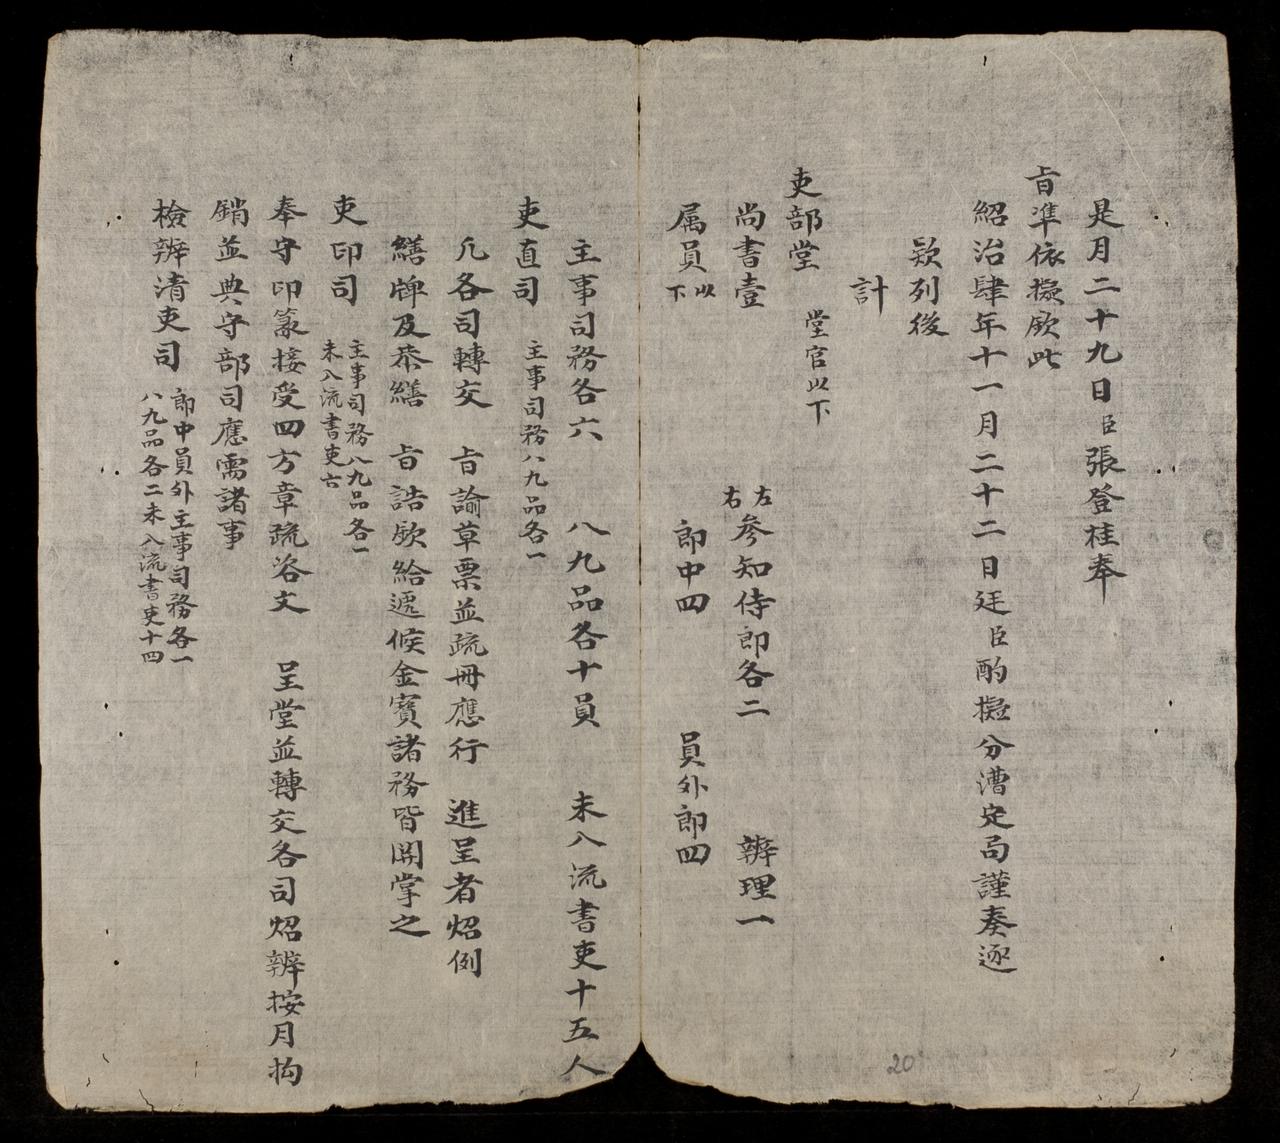 是月二十九日臣張登桂奉
旨準依擬欽此
紹治肆年十一月二十二日廷臣酌擬分漕定局謹奏逐
欵列後
計
吏部堂 堂官以下
尚書壹 左右參知侍郎各二 辨理一
属員以下 郎中四 員外郎四
主事司務各六 八九品各十員 未入流書吏十五人
吏直司 主事司務八九品各一
凢各司轉交 旨諭草票並疏冊應行 進呈者炤例
繕牌及恭繕 旨誥欽給遞候金寳諸務皆開掌之
吏印司 主事司務八九品各一
未入流書吏六
奉守印篆接受四方章疏咨文 呈堂並轉交各司炤辨按月拘
銷並典守部司應需諸事
檢辨清吏司 郎中員外主事司務各一
八九品各二未入流書吏十四
20